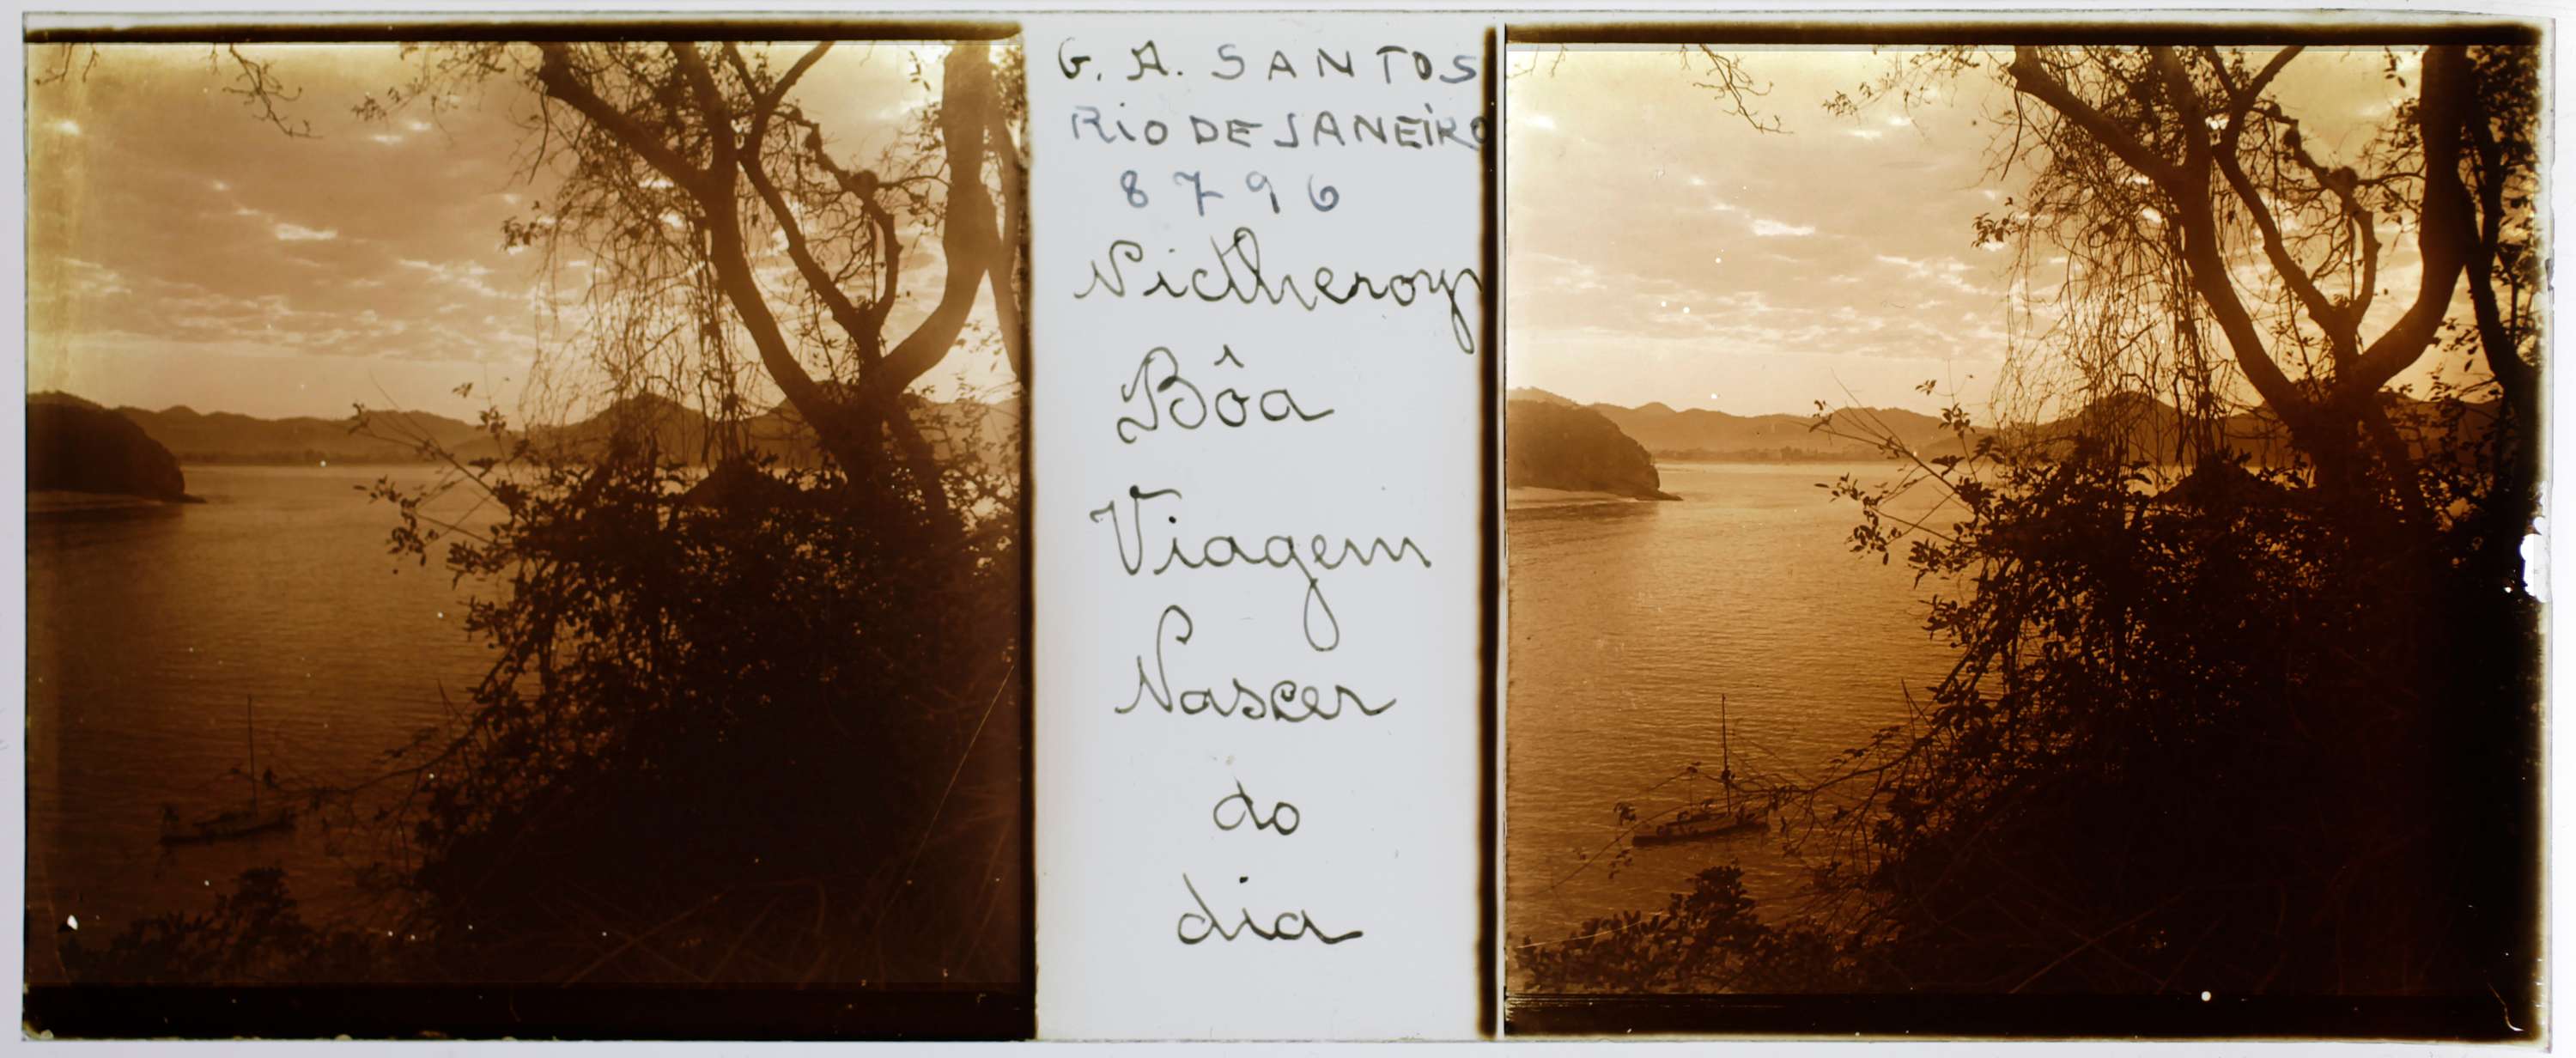 G. A. SANTOS
RIO DE JANEIRO
8796
Nictheroy
Bôa
Viagem
Nascer
do
dia